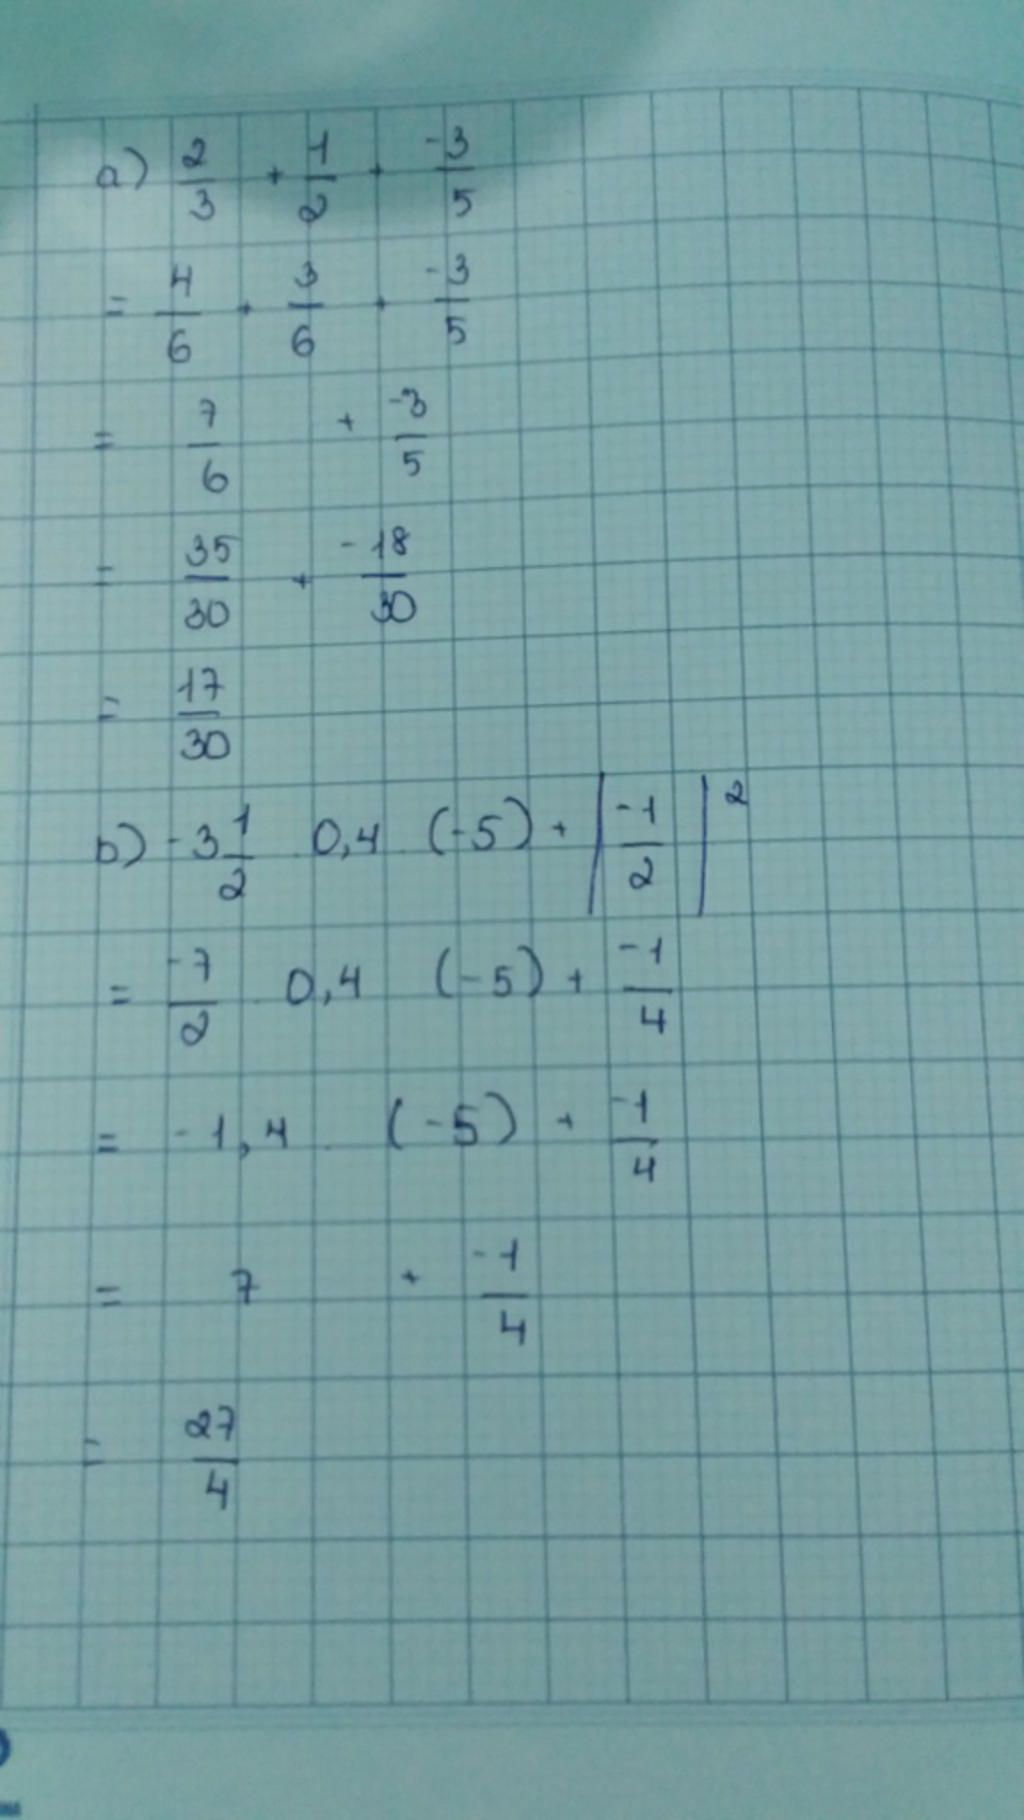 a) 2/3 + 1/2 + -3/5
= 4/6 + 3/6 + -3/5
= 7/6 + -3/5
= 35/30 + -18/30
= 17/30
b) -3 1/2 . 0,4 . (-5) + |-1/2|²
= -7/2 . 0,4 (-5) + -1/4
= -1,4 . (-5) + -1/4
= 7 + -1/4
= 27/4